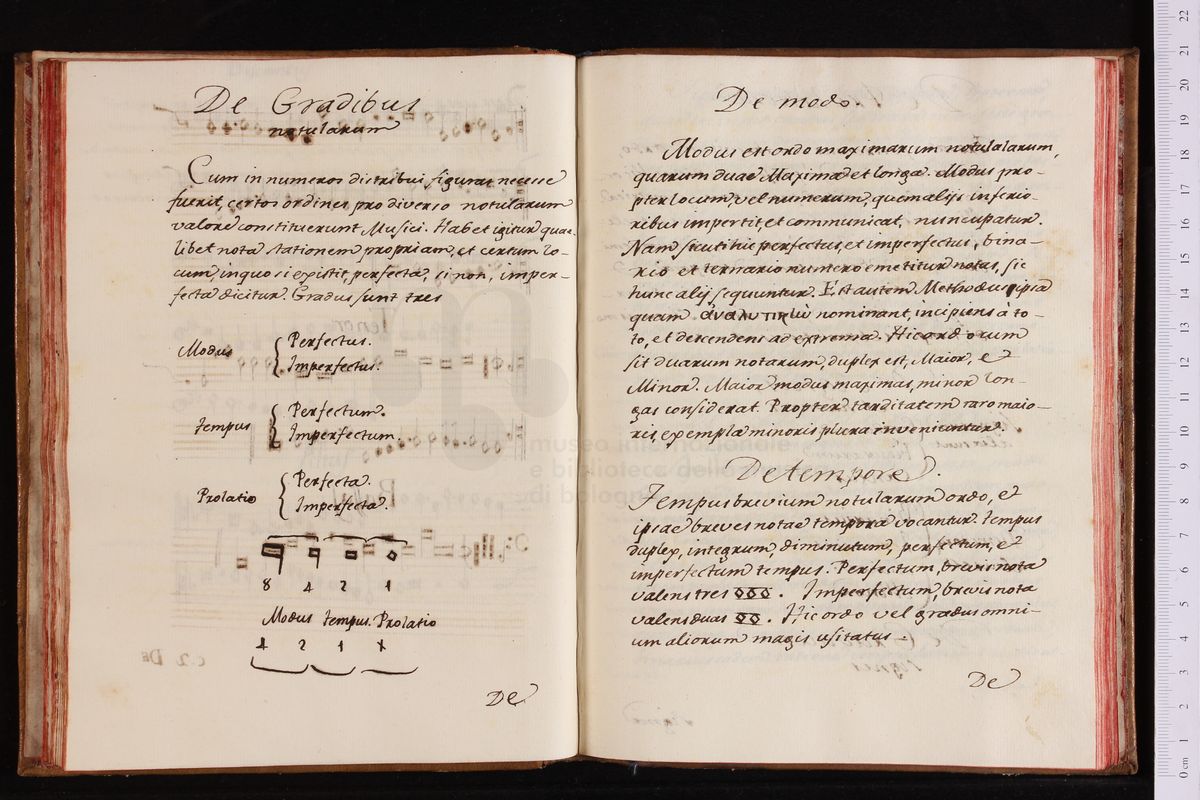 De Gradibus
notularum
Cum in numeros distribui figuras necesse
fuerit, certos ordines pro diverso notularum
valore constituerunt Musici. Habet igitur quae
libet nota stationem propriam, et certum lo-
cum in quo si existit, perfecta, si non, imper-
fecta dicitur. Gradus sunt tres
Modus
Perfectus.
Imperfectus.
tempus
Perfectum.
Imperfectum.
Prolatio
Perfecta.
Imperfecta.
8 4 2 1
Modus tempus Prolatio
4 2 1
De
De modo.
Modus est ordo maximarum notulalarum,
quarum duae Maxima et longa. Modus pro-
pter locum, vel numerum, quem alijs inferio-
ribus impertit, et communicat, nuncupatur.
Nam sicuti hic perfectus, et imperfectus, bina-
rio et ternario numero emetitur notas, sic
hunc alij sequuntur. Est autem Methodus ipsa
quam nominant, incipiens à to-
to, et descendens ad extrema. Hic ordo cum
sit duarum notarum, duplex est, Maior, et
Minor. Maior modus maximas, minor lon-
gas considerat. Propter tarditatem raro maio-
ris, exempla minoris plura inveniuntur.
De tempore.
Tempus brevium notularum ordo, et
ipsae breves notae tempora vocantur. tempus
duplex, integrum, diminutum, perfectum, et
imperfectum tempus. Perfectum, brevis nota
valens tres. Imperfectum, brevis nota
valens duas. Hic ordo vel gradus omni-
um aliorum magis usitatus.
De
museo internazionale
e biblioteca della
di bologna
0 cm 1 2 3 4 5 6 7 8 9 10 11 12 13 14 15 16 17 18 19 20 21 22